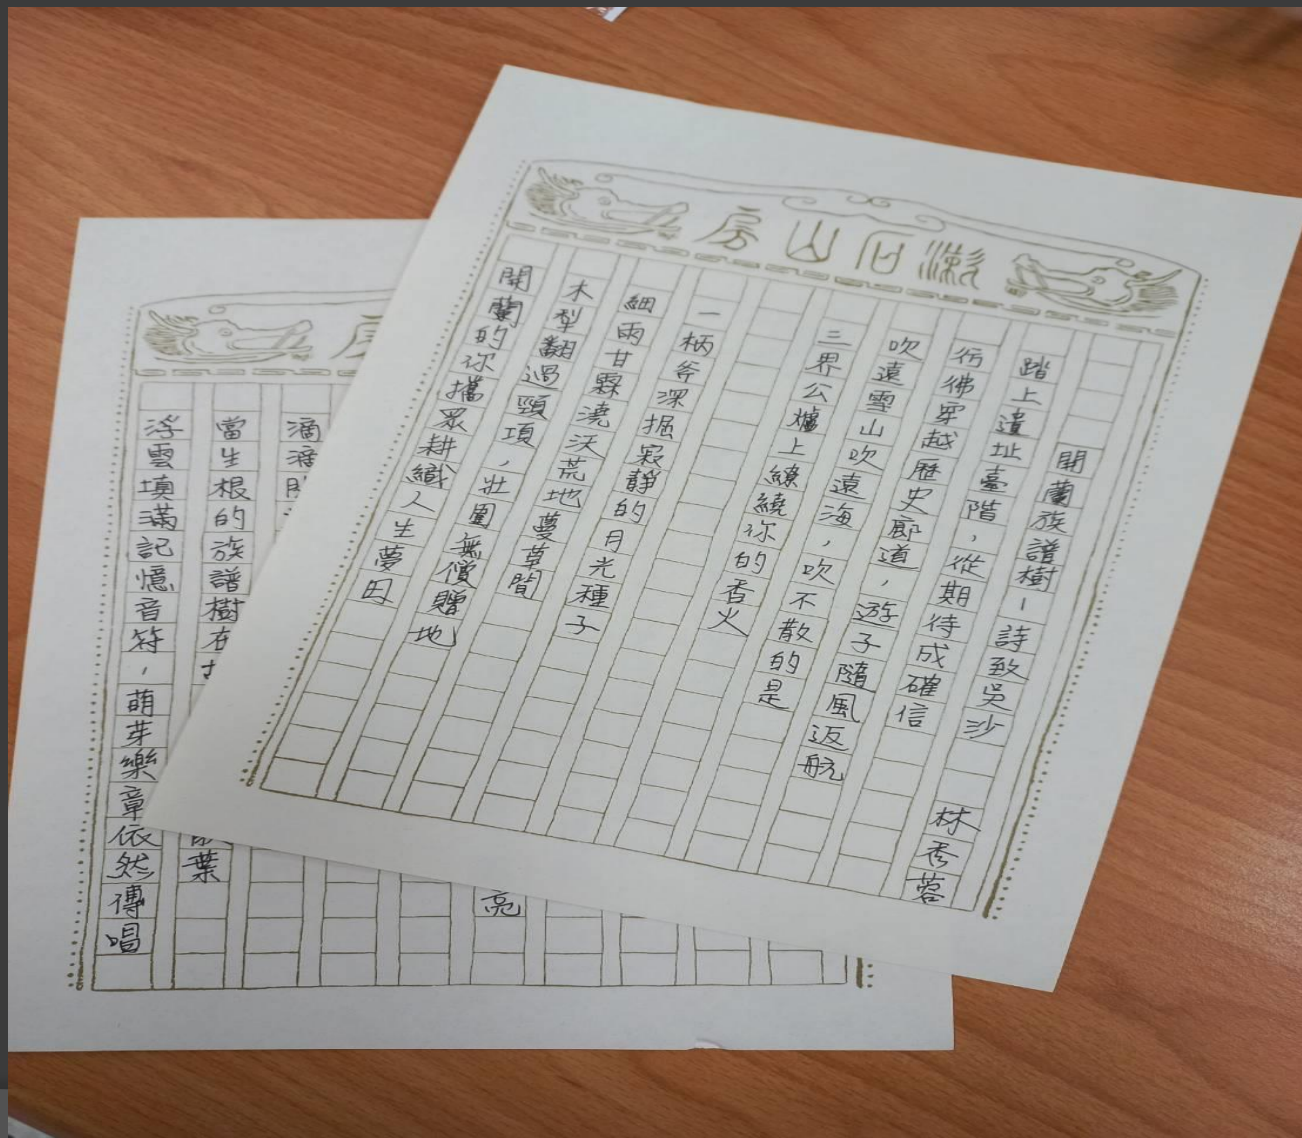 漱石山房
開蘭族譜樹-詩致吳沙 林秀蓉
踏上遺址臺階,從期待成確信
彷佛穿越歷史廊道,遊子隨風返航
吹遠雪山吹遠海,吹不散的是
三界公爐上繚繞你的香火
一柄斧深掘寂靜的月光種子
細雨甘霖澆沃荒地蔓草間
木犁翻過頸項,壯圍無償贈地
開蘭的你攜眾耕織人生夢田
房
亮
滴滴
當生根的族譜樹在
葉
浮雲填滿記憶音符,萌芽樂章依然傳唱